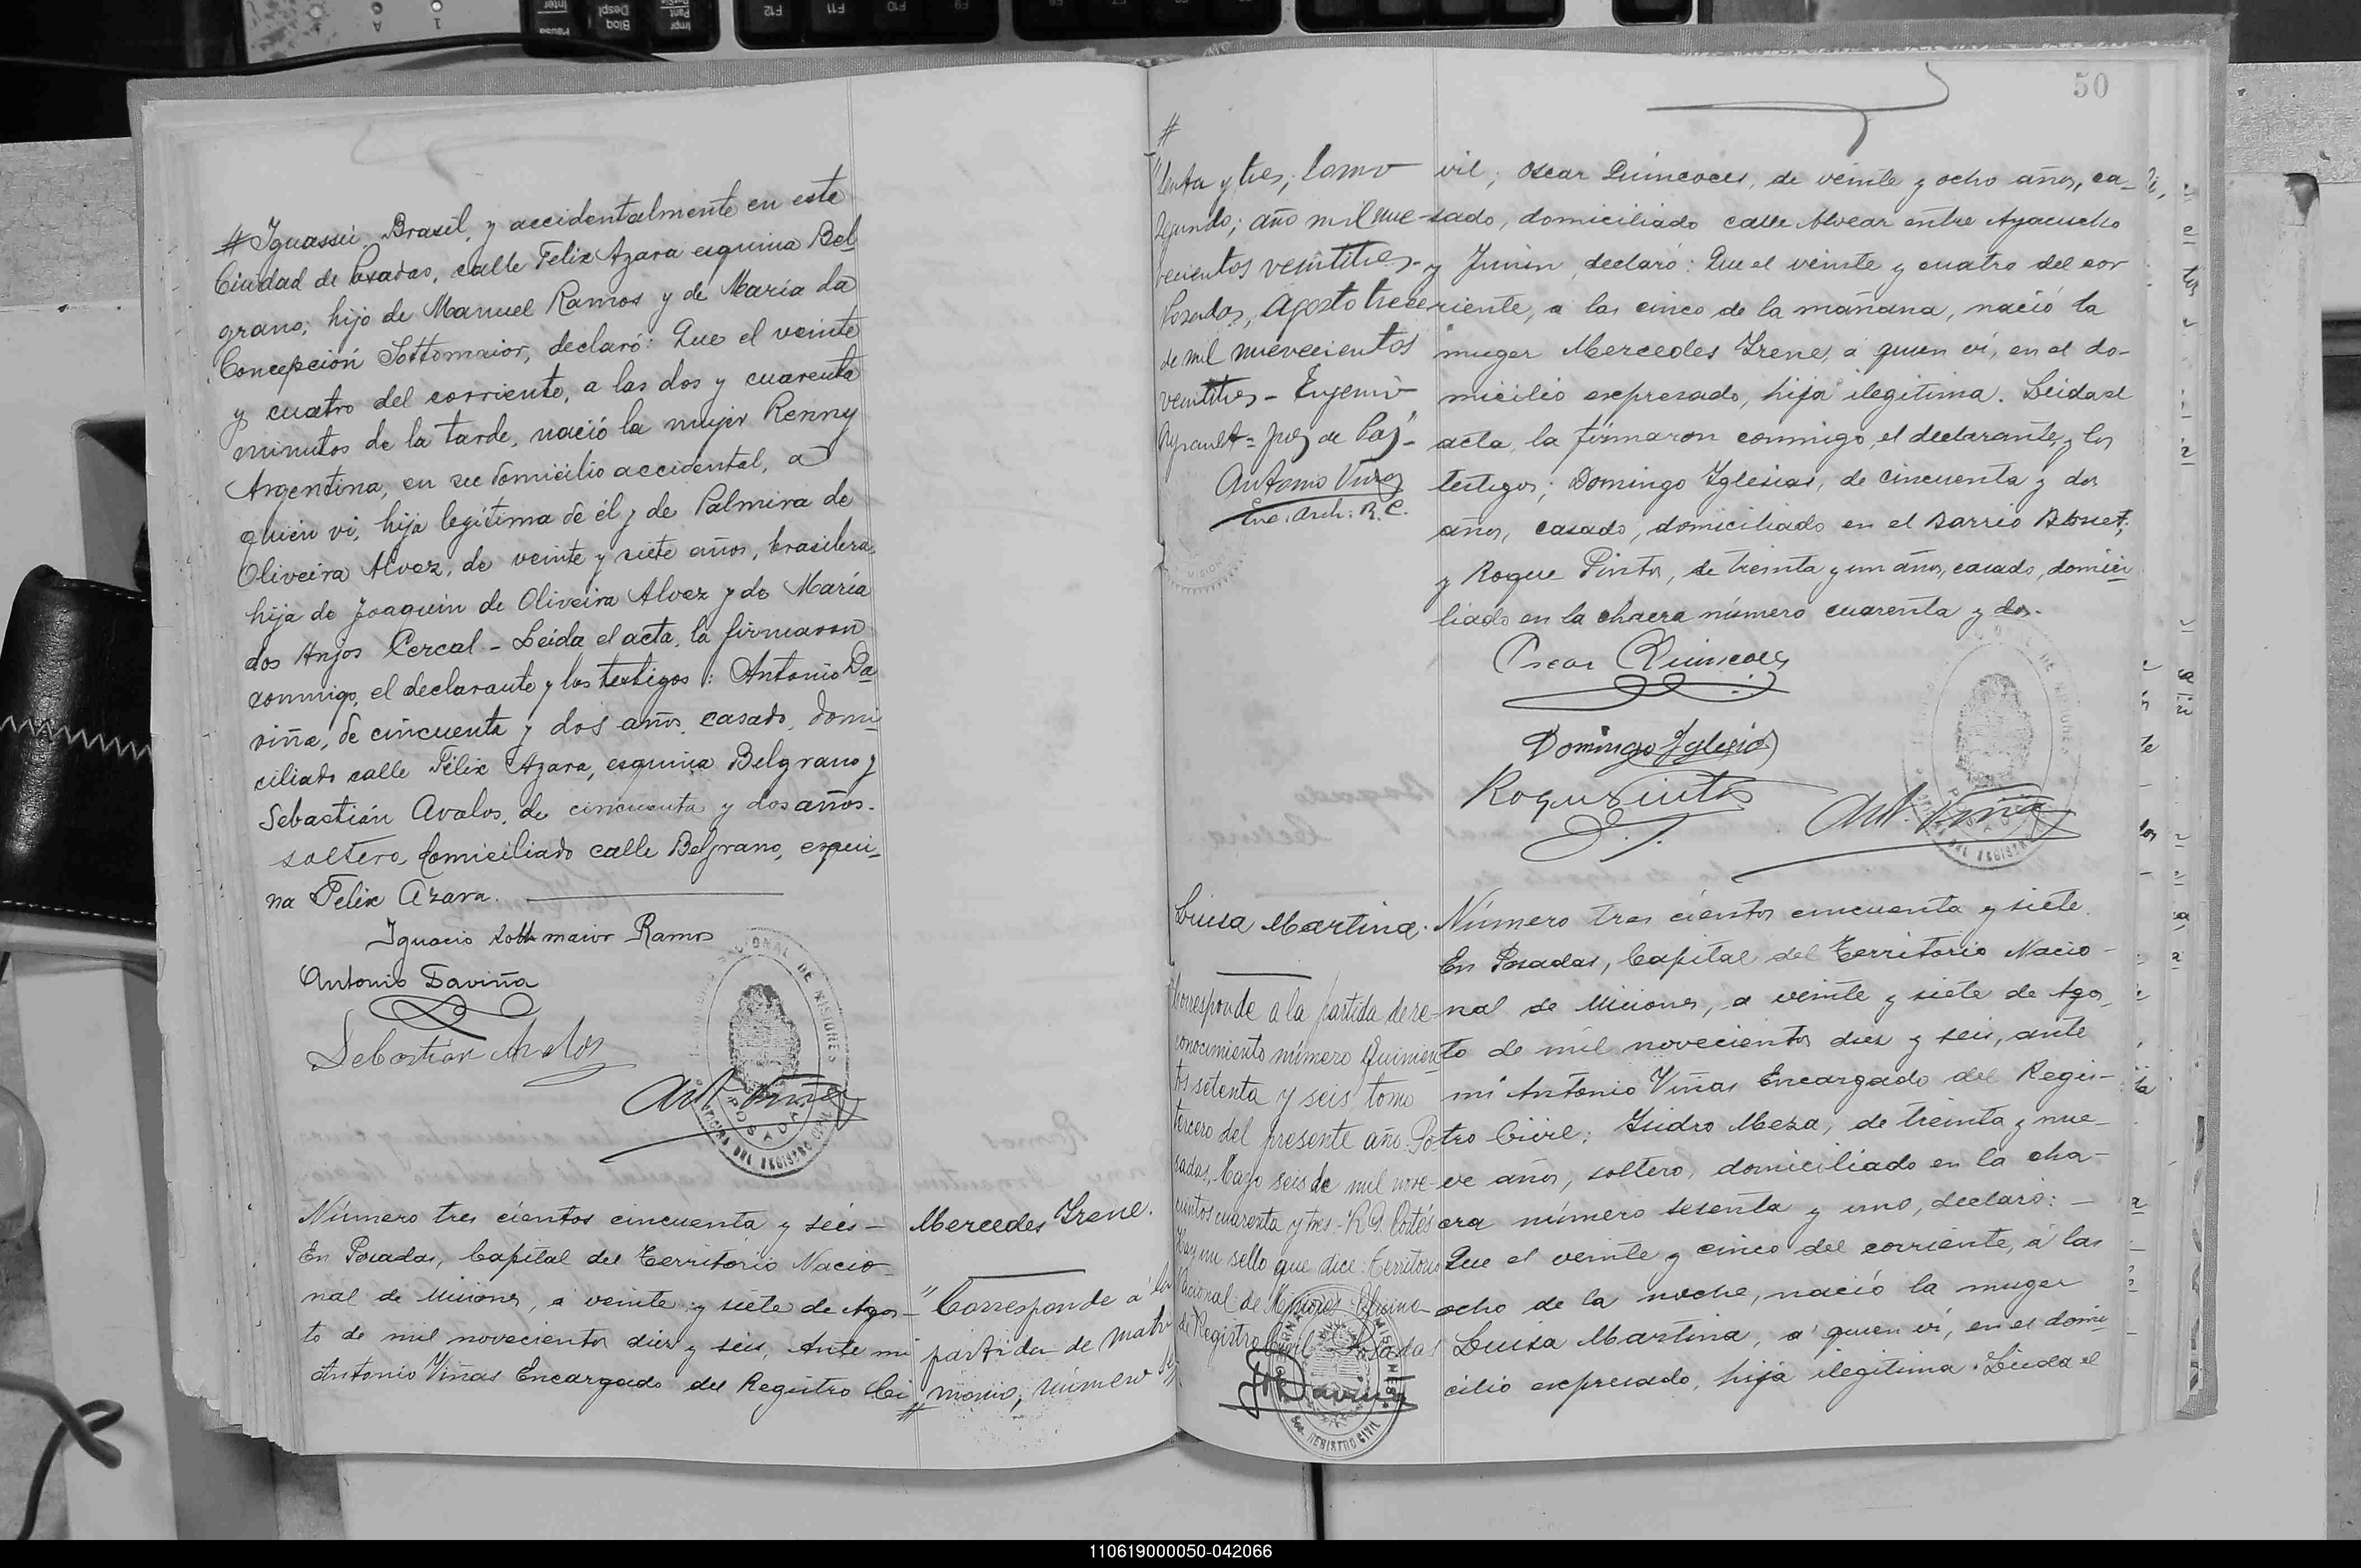 # Iguassú, Brasil, y accidentalmente en esta
Ciudad de Posadas, calle Felix Azara esquina Bel
grano; hijo de Manuel Ramos y de María da
Concepción Sottomaior, declaró: Que el veinte
y cuatro del corriente, a las dos y cuarenta
minutos de la tarde, nació la mujer Renny
Argentina, en su domicilio accidental, a
quien vi, hija legítima de él y de Palmira de
Oliveira Alvez, de veinte y siete años, brasilera,
hija de Joaquin de Oliveira Alvez y de María
dos Anjos Cercal - Leida el acta, la firmaron
conmigo, el declarante y los testigos: Antonio Da
viña, de cincuenta y dos años, casado, domi
ciliado calle Félix Azara, esquina Belgrano y
Sebastián Avalos, de cincuenta y dos años.
soltero, domiciliado calle Belgrano, esqui_
na Felix Azara.
Ignacio Sottomaior Ramos
Antonio Daviña
Sebastián Avalos
Ant. Viñas
Número tres cientos cincuenta y seis -
En Posadas, Capital del Territorio Nacio-
nal de Misiones, a veinte y siete de Agos-
to de mil novecientos diez y seis, Ante mi
Antonio Viñas Encargado del Registro Ci
Mercedes Irene.
"Corresponde á la
partida de matri
monio, número
#
50
#
tenta y tres; tomo
segundo; año mil nue-
vecientos veintitres.-
Posadas, Agosto trece
de mil nuevecientos
veintitres - Eugenio
= Juez de Paz"-
Enc. Arch: R. C.
vil; Oscar Quincoces, de veinte y ocho años, ca-
sado, domiciliado calle Alvear entre Ayacucho
y Junin, declaró: Que el veinte y cuatro del cor
riente, a las cinco de la mañana, nació la
muger Mercedes Irene, a quien ví, en el do-
micilio expresado, hija ilegitima. Leida el
acta, la firmaron conmigo, el declarante y los
testigos; Domingo Iglesias, de cincuenta y dos
años, casado, domiciliado en el Barrio Blosset;
y Roque Pintos, de treinta y un años, casado, domici
liado en la chacra número cuarenta y dos.
Oscar Quincoces
Domingo Iglesias
Roque Pintos
Ant. Viñas
Luisa Martina.
Corresponde a la partida de re-
conocimiento número Quinien
tos setenta y seis tomo
tercero del presente año. Po-
sadas, Mayo seis de mil nove-
cientos cuarenta y tres. R. G. Cortés
Hay un sello que dice: Territorio
Nacional de Misiones Oficina
de Registro Civil Posadas
REGISTRO CIVIL
Número tres cientos cincuenta y siete.
En Posadas, Capital del Territorio Nacio-
nal de Misiones, a veinte y siete de Agos_
to de mil novecientos diez y seis, ante
mi Antonio Viñas Encargado del Regis-
tro Civil; Isidro Meza, de treinta y nue-
ve años, soltero, domiciliado en la cha-
cra número sesenta y uno, declaró: -
Que el veinte y cinco del corriente, a las
ocho de la noche, nació la muger
Luisa Martina, a quien ví, en el domi
cilio expresado, hija ilegitima. Leida el
110619000050-042066